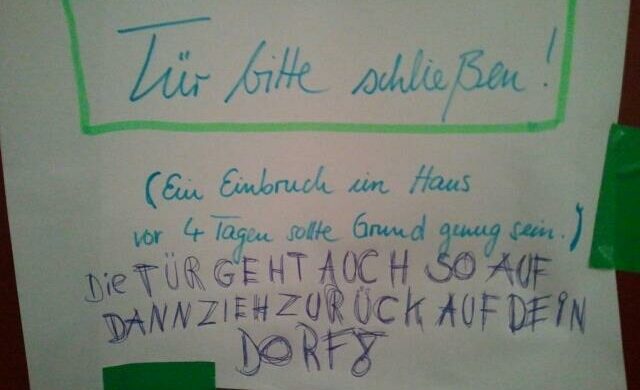 Tür bitte schließen!
(Ein Einbruch im Haus
vor 4 Tagen sollte Grund genug sein.)
Die TÜR GEHT AUCH SO AUF
DANN ZIEH ZURÜCK AUF DEIN
DORF